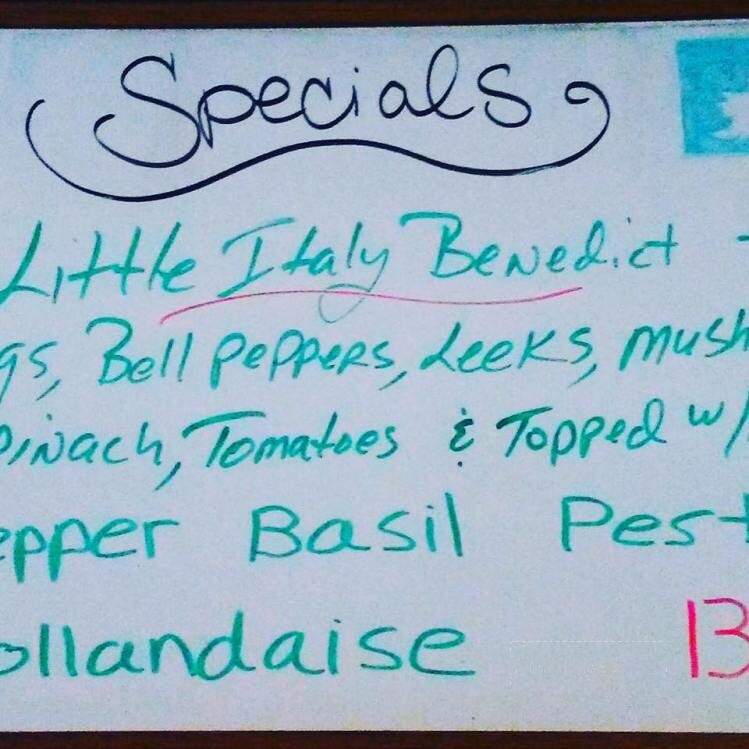 Specials
Little Italy Benedict -
gs, Bell Peppers, Leeks, Mush
pinach, Tomatoes & Topped w/
epper Basil Pest
ollandaise 13